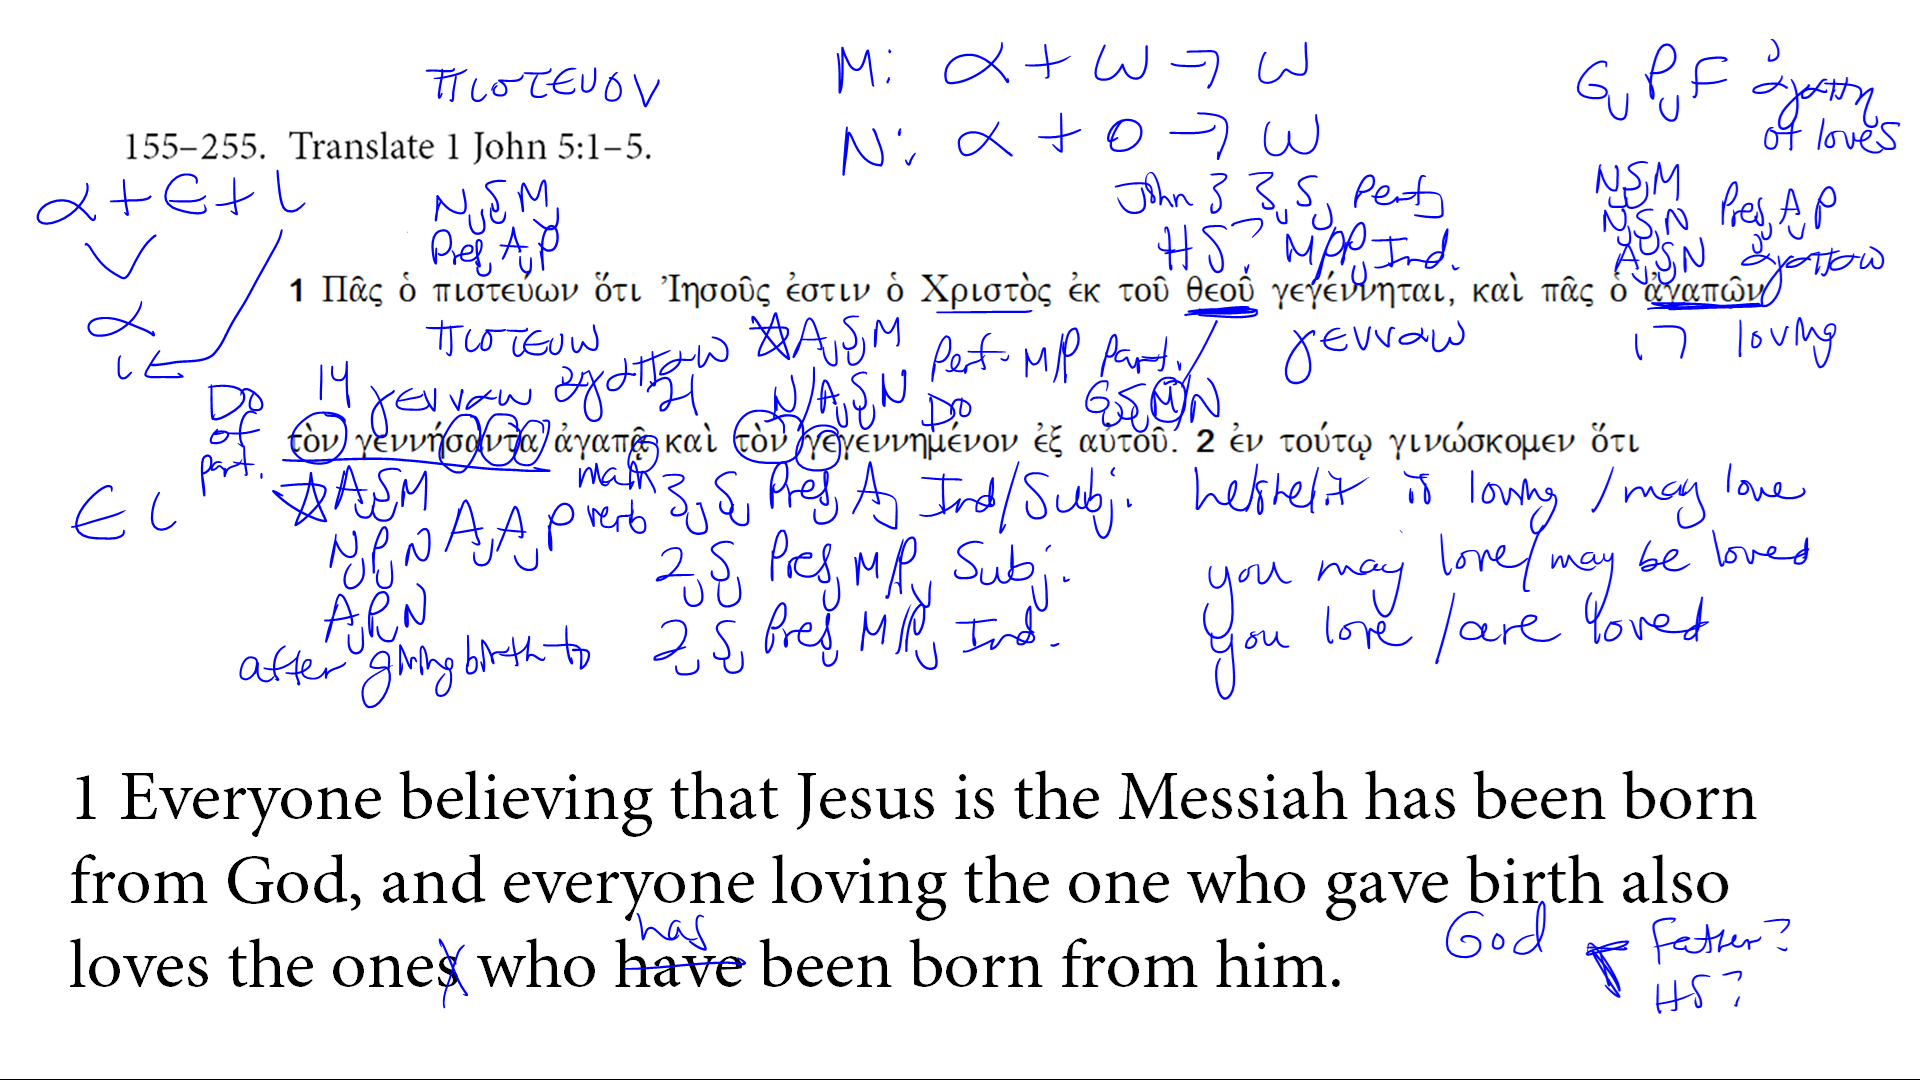 πιστευον
M: α + ω → ω
G, P, F ἀγαπη
of loves
155–255. Translate 1 John 5:1–5.
N: α + ο → ω
α + ε + ι
N, S, M,
Pres, A, P
John 3 3, S, Perf,
HS? M/P, Ind.
N, S, M
N, S, N Pres, A, P
A, S, N ἀγαπαω
1 Πᾶς ὁ πιστεύων ὅτι Ἰησοῦς ἐστιν ὁ Χριστὸς ἐκ τοῦ θεοῦ γεγέννηται, καὶ πᾶς ὁ ἀγαπῶν
α
ι
πιστευω
A, S, M
Perf. M/P Part.
γενναω
17 loving
Do
of
part.
14 γενναω ἀγαπαω 21
N/A, S, N
Do
G, S, M/N
τὸν γεννήσαντα ἀγαπᾷ καὶ τὸν γεγεννημένον ἐξ αὐτοῦ. 2 ἐν τούτῳ γινώσκομεν ὅτι
ε ι
A, S, M
N, P, N A, A, P
A, P, N
after giving birth to
main
verb
3, S, Pres, A, Ind/Subj. he/she/it is loving / may love
2, S, Pres, M/P, Subj. you may love/may be loved
2, S, Pres, M/P, Ind. you love /are loved
1 Everyone believing that Jesus is the Messiah has been born
from God, and everyone loving the one who gave birth also
has
loves the ones who have been born from him.
God
Father?
HS?